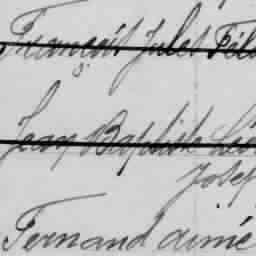 François Jules Fél
Jean Baptiste Léo
Josep
Fernand aimé